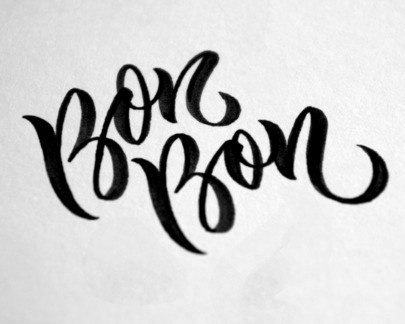 Bon
Bon